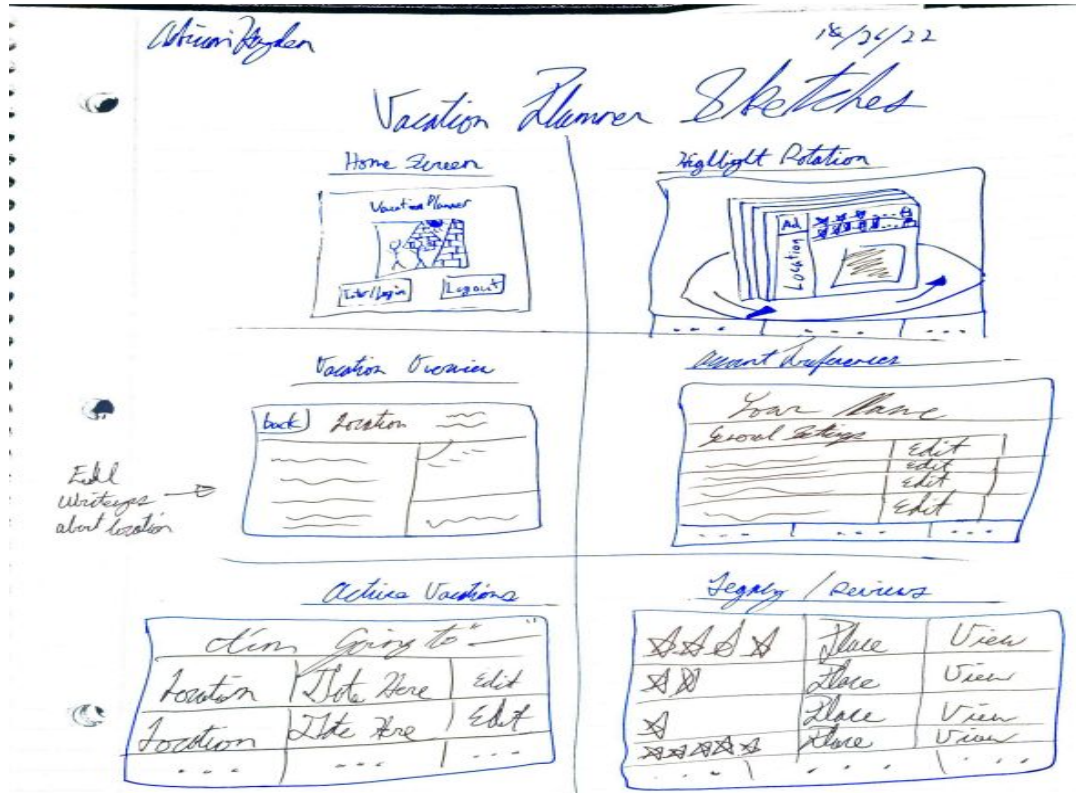 Hayden
/22
Vacation Planner Sketches
Home Screen
Vacation Planner
Enter/Login
Logout
Highlight Rotation
Ad
Location
Vacation Overview
back
Location
Full
about location
Account Preferences
Your Name
General Settings
Edit
Edit
Edit
Edit
Active Vacations
I'm Going to "
"
Location Date Here Edit
Location Date Here Edit
Legacy / Reviews
Place View
Place View
Place View
Place View